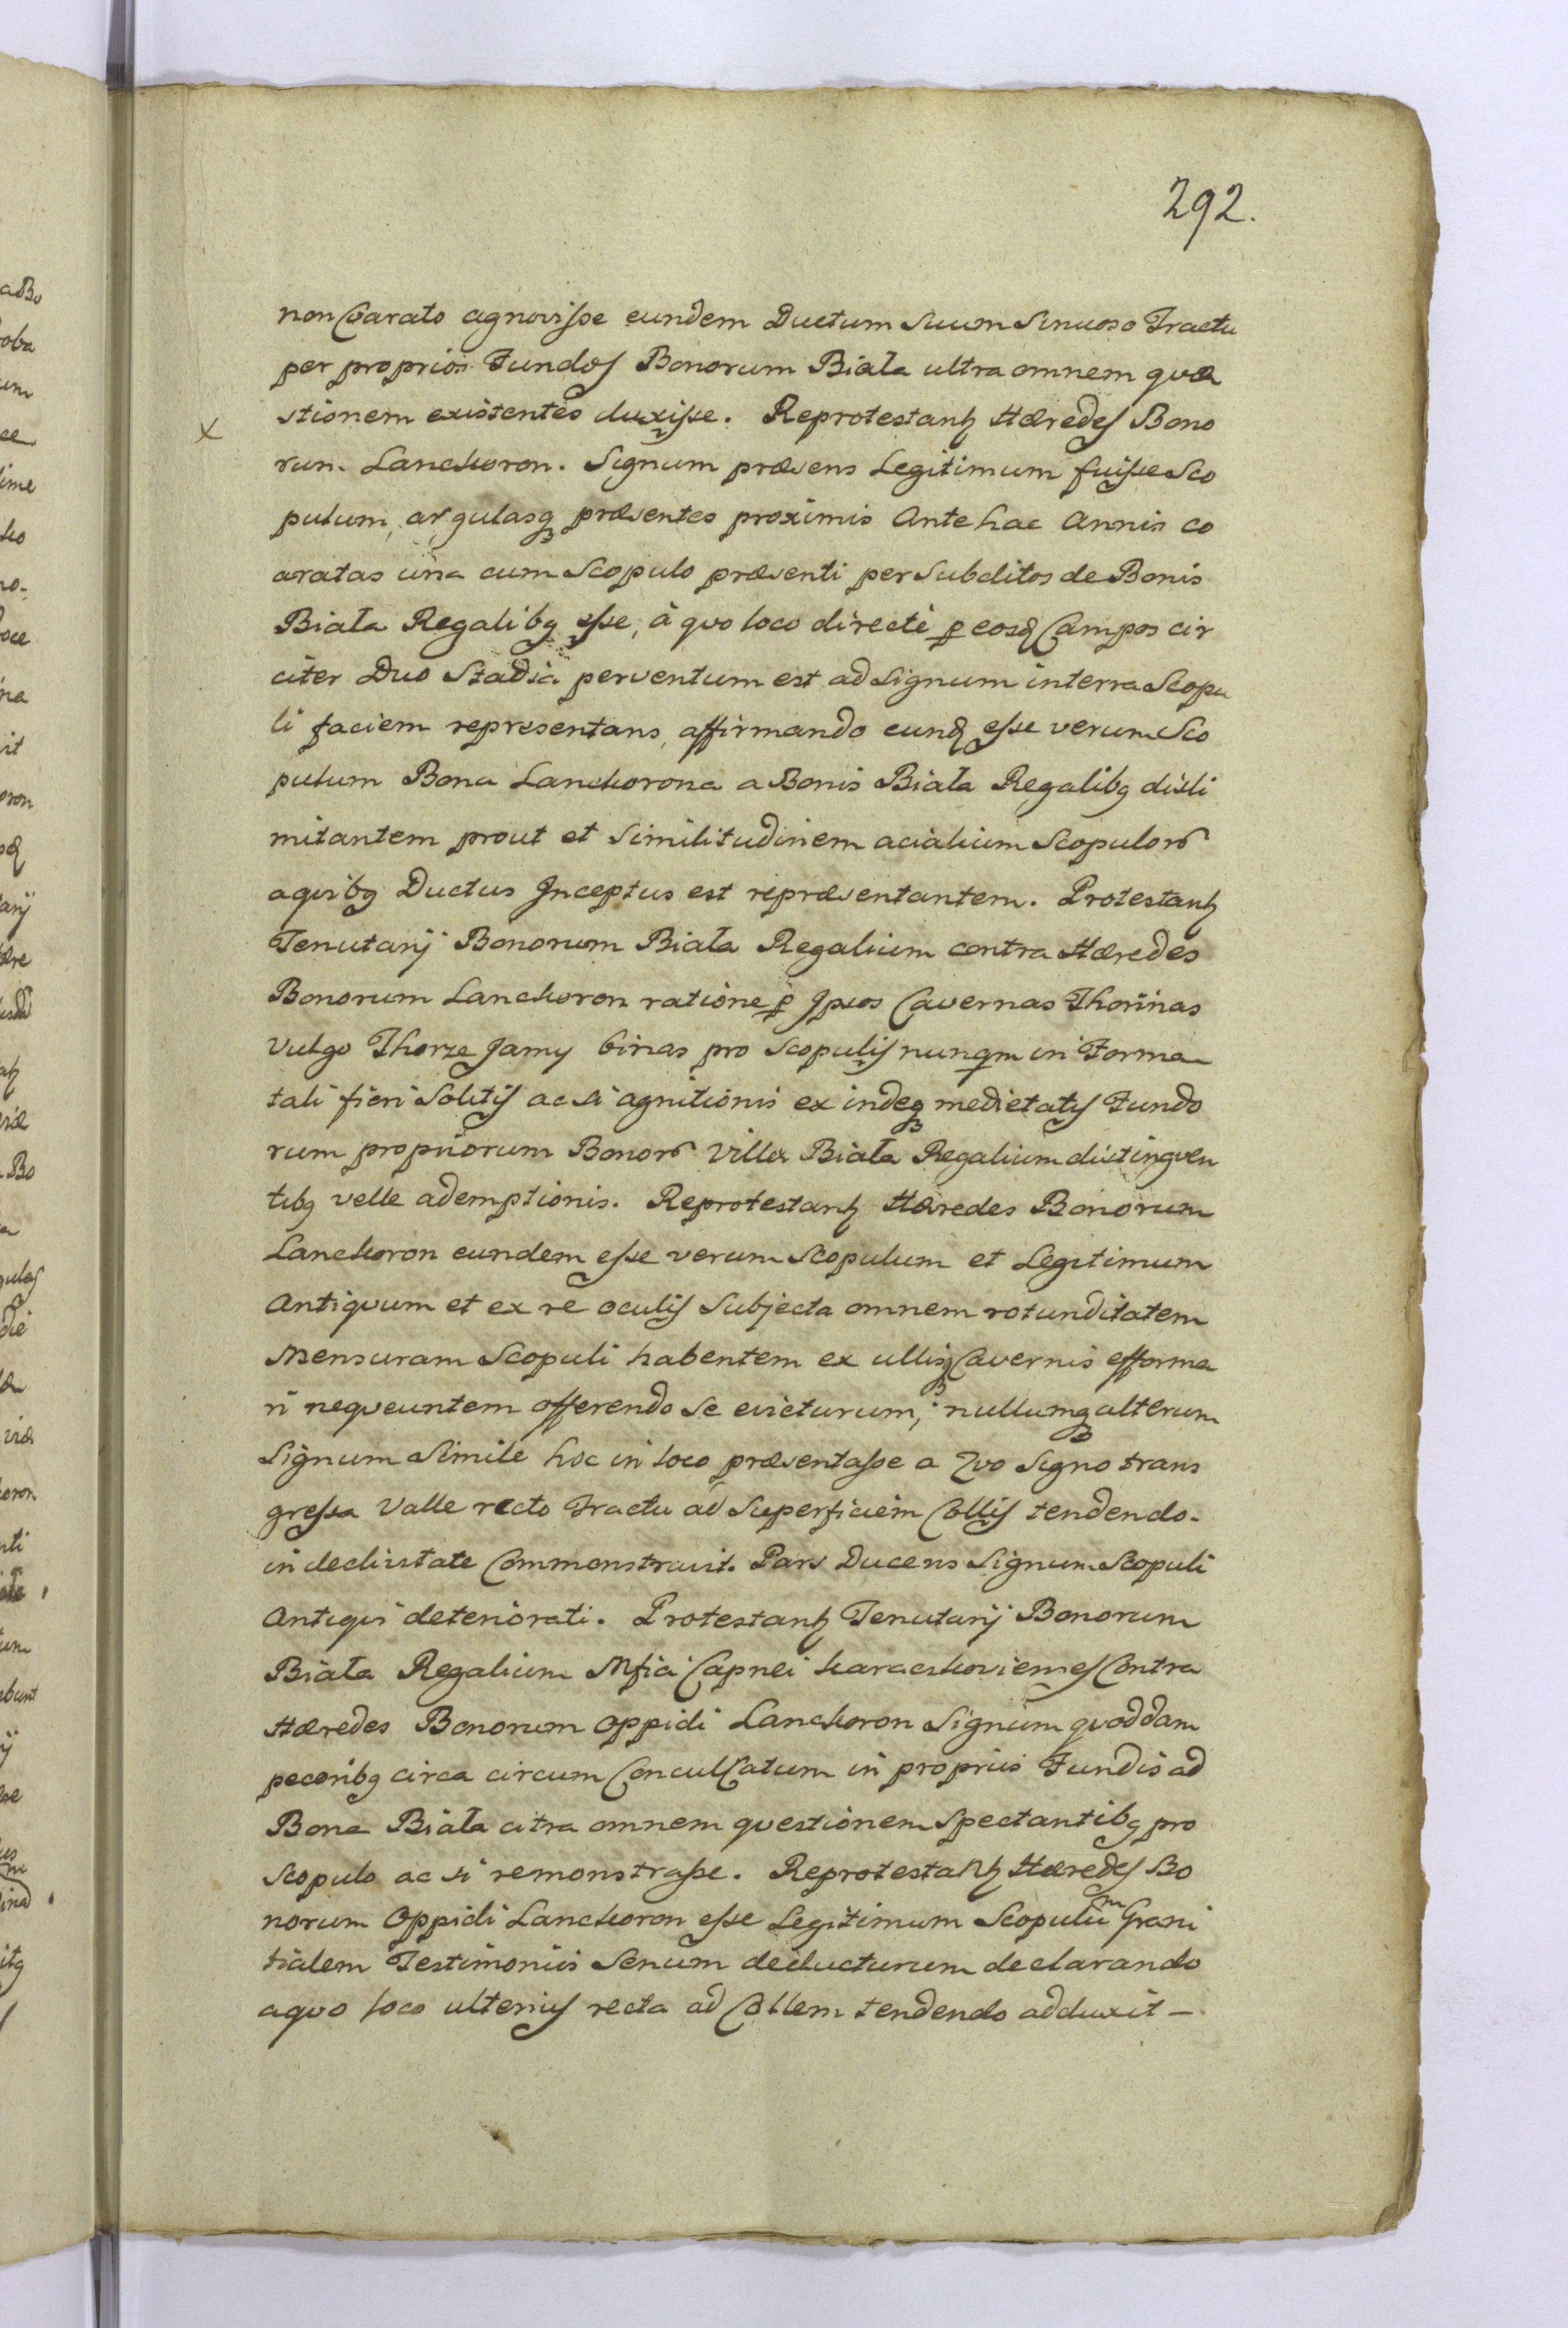 292.
non Coarato agnovisse eundem Ductum Suum Sinuoso Tractu
per proprios Fundos Bonorum Biała ultra omnem quæ
stionem existentes duxisse. Reprotestantz Hæredes Bono
rum Lanckoron. Signum præsens Legitimum fuisse Sco
pulum, argulasq præsentes proximis Ante hac Annis co
aratas una cum Scopulo præsenti per Subditos de Bonis
Biała Regalibg esse, à quo loco directè p eosd Campos cir
citer Duo Stadia perventum est ad Signum in terra Scopu
li faciem representans, affirmando eund esse verum Sco
pulum Bona Lanckorona a Bonis Biała Regalibg disli
mitantem prout et Similitudinem acialium Scopulor
a quibg Ductus Inceptus est repræsentantem. Protestantz
Tenutarij Bonorum Biała Regalium contra Hæredes
Bonorum Lanckoron ratione p Ipsos Cavernas Thorinas
Vulgo Thorze Jamy binas pro Scopulis nunqm in Forma
tali fieri Solitis ac si agnitionis ex indeq medietatis Fundo
rum propriorum Bonor Villæ Biała Regalium distinguen
tibg velle ademptionis. Reprotestantz Hæredes Bonorum
Lanckoron eundem esse verum Scopulum et Legitimum
Antiquum et ex re oculis Subjecta omnem rotunditatem
Mensuram Scopuli habentem ex ullisq Cavernis efforma
ri nequeuntem offerendo Se evicturum, nullumq alterum
Signum Simile hoc in loco præsentasse a Quo Signo trans
gressa Valle recto Tractu ad Superficiem Collis tendendo
in declivitate Commonstravit. Pars Ducens Signum Scopuli
Antiqui deteriorati. Protestantz Tenutarij Bonorum
Biała Regalium Mfici Capnei Contra
Hæredes Bonorum Oppidi Lanckoron Signum quoddam
pecoribg circa circum Conculcatum in propriis Fundis ad
Bona Biała citra omnem questionem Spectantibg pro
Scopulo ac si remonstrasse. Reprotestantz Hæredes Bo
norum Oppidi Lanckoron esse Legitimum Scopulum Grani
tialem Testimoniis Senum deducturum declarando
a quo loco ulterius recta ad Collem tendendo adduxit —